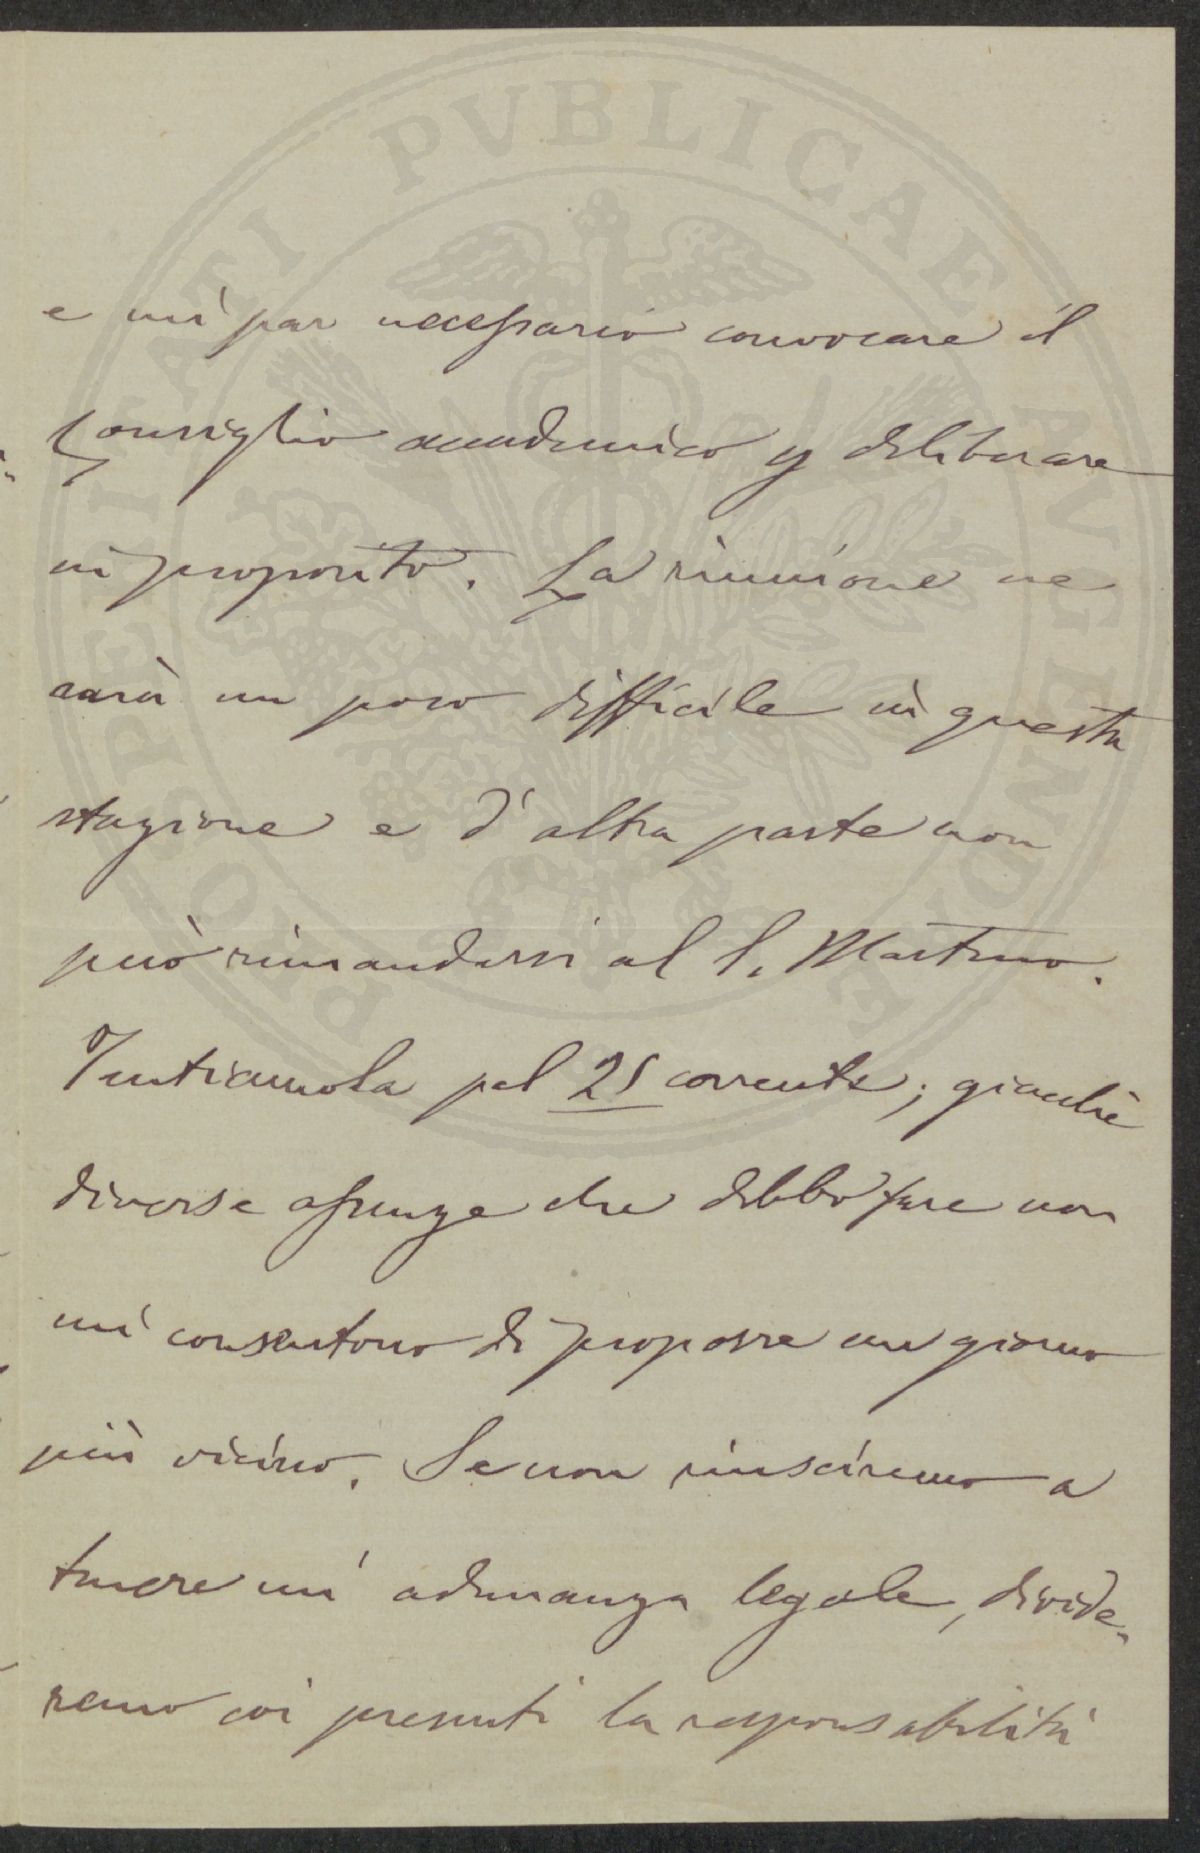 PROSPERITATI PVBLICAE AVGENDAE
e mi par necessario convocare il
Consiglio accademico p deliberare
in proposito. La riunione ne
sarà un poco difficile in questa
stagione e d'altra parte non
può rimandarsi al S. Martino.
Tentiamola pel 25 corrente; giacchè
diverse assenze che debbo fare non
mi consentono di proporre un giorno
più vicino. Se non riusciremo a
tenere un' adunanza legale, divide-
remo coi presenti la responsabilità